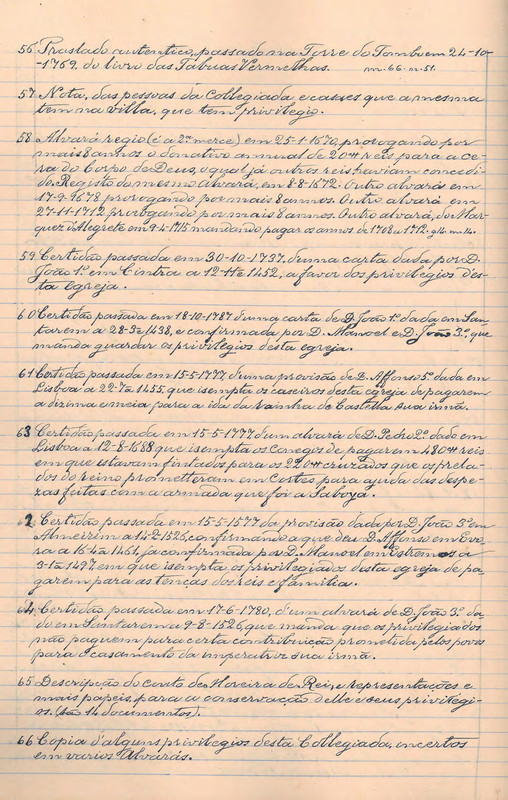 56 Traslado autentico, passado na Torre do Tombo em 24-10-
-1769, do livro das Tabuas Vermelhas. m. 66. n. 51.
57 Nota, das pessoas da Collegiada e casaes que a mesma
tem na villa, que tem privilegio.
58 Alvará regio (é a 2ª merce) em 25-1-1670, prorogando por
mais 8 annos o donativo annual de 20# reis para a ce-
ra do Corpo de Deus, o qual já outros reis haviam concedi-
do. Registo do mesmo Alvará, em 8-8-1672. Outro alvará em
17-9-1678 prorogando por mais 8 annos. Outro alvará em
27-11-1712 prorogando por mais 8 annos. Outro alvará, do Mar-
quez d'Alegrete em 9-4-1715 mandando pagar os annos de 1708 a 1712.
59 Certidão passada em 30-10-1737, duma carta dada por D.
João 1º em Cintra a 12-11º-1452, a favor dos privilegios des-
ta Egreja.
60 Certidão passada em 18-10-1787 duma carta de D. João 1º dada em San-
tarem a 28-3º-1438, e confirmada por D. Manoel e D. João 3º, que
manda guardar os privilegios desta egreja.
61 Certidão passada em 15-5-1777 duma provisão de D. Affonso 5º dada em
Lisboa a 22-7º-1455, que isempta os caseiros desta egreja de pagarem
a dizima e meia para a ida da rainha de Castella sua irmã.
63 Certidão passada em 15-5-1777 dum alvará de D. Pedro 2º dado em
Lisboa a 12-8-1688 que isempta os conegos de pagarem 480# reis
em que estavam fintados para os 220# cruzados que os prela-
dos do reino prometteram em cortes para ajuda das despe-
zas feitas com a armada que foi a Saboya.
62 Certidão passada em 15-5-1577 da provisão dada por D. João 3º em
Almeirim a 14-2-1526, confirmando a que deu D. Affonso em Evo-
ra a 16-4º-1464, já confirmada por D. Manoel em Estremoz a
3-1º-1497 em que isempta os privilegiados desta egreja de pa-
garem para as tenças dos reis e familia.
64 Certidão passada em 17-6-1780, d'um alvará de D. João 3º da-
do em Santarem a 9-8-1526, que manda que os privilegiados
não paguem para certa contribuição promettida pelos povos
para o casamento da imperatriz sua irmã.
65 Descripção do couto de Moreira de Rei, e representações e
mais papeis, para a conservação delle e seus privilegi-
os. (são 14 documentos).
66 Copia d'alguns privilegios desta Collegiada, incertos
em varios Alvarás.